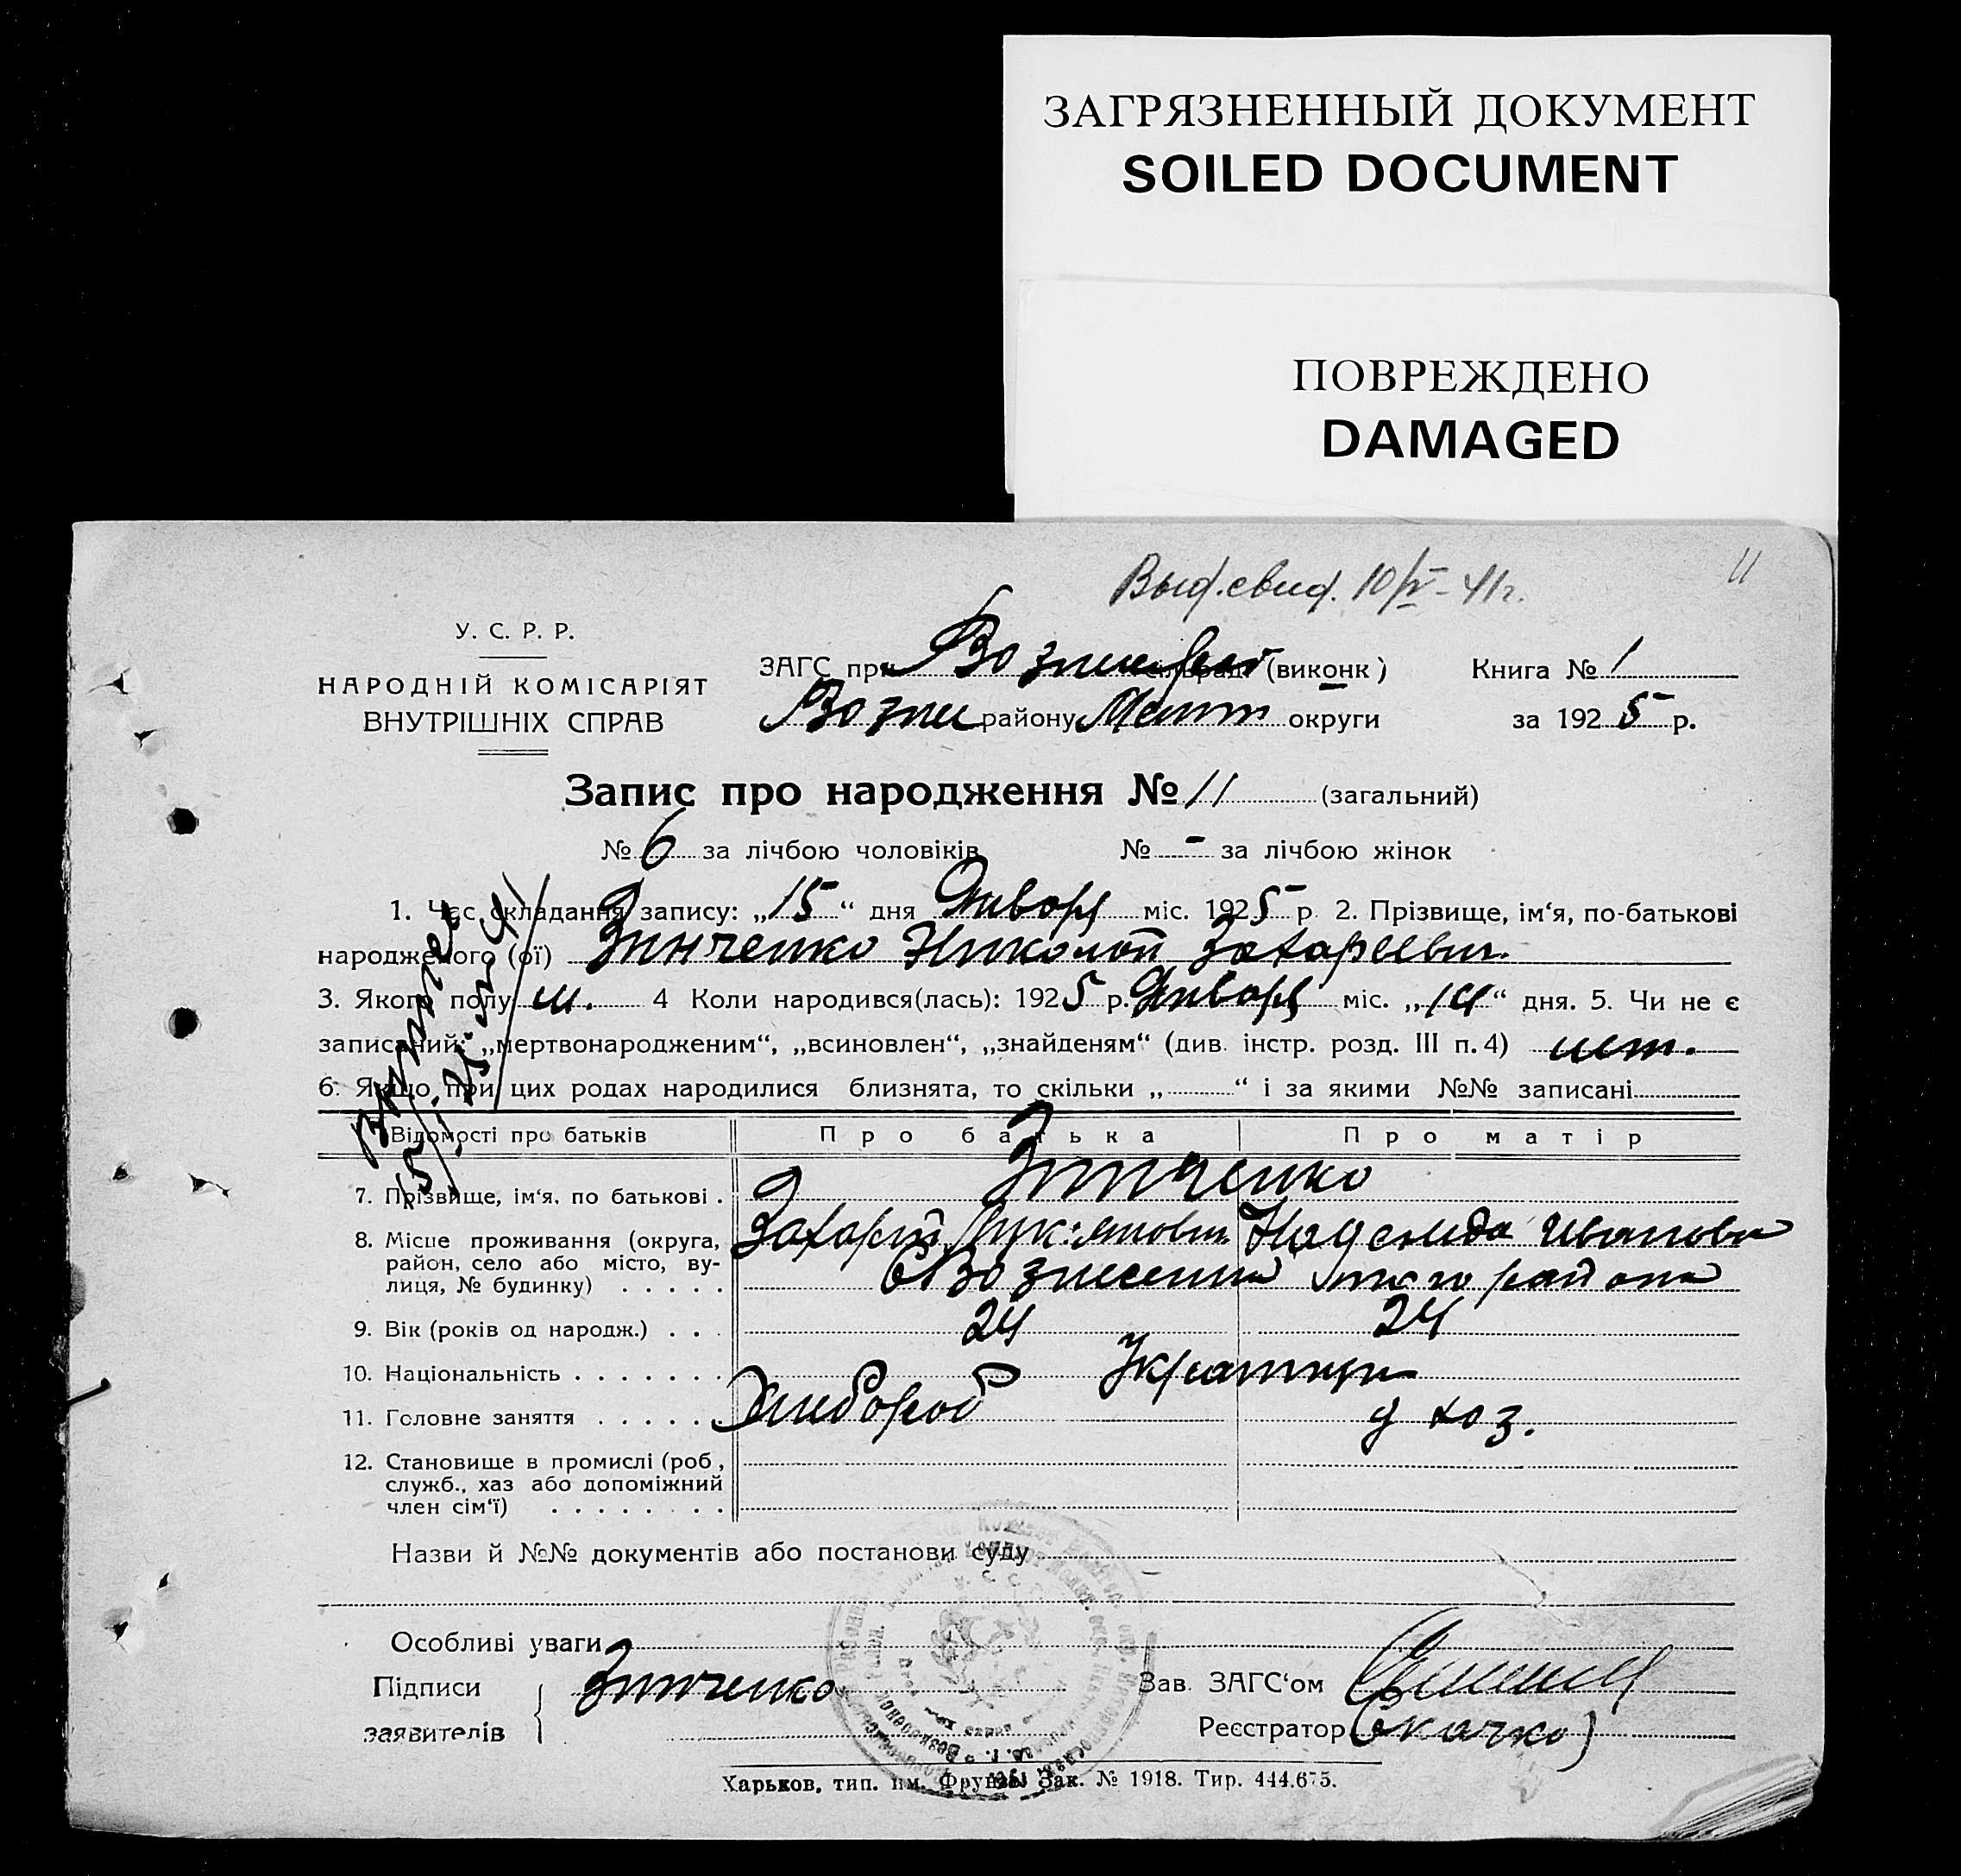 ЗАГРЯЗНЕННЫЙ ДОКУМЕНТ
SOILED DOCUMENT
ПОВРЕЖДЕНО
DAMAGED
Выд. свид. 10/IV-41г.
11
У. С. Р. Р.
НАРОДНІЙ КОМІСАРІЯТ
ВНУТРІШНІХ СПРАВ
ЗАГС при сільраді (виконк) Книга № 1
Возне району Меліт округи за 1925 р.
Запис про народження № 11 (загальний)
№ 6 за лічбою чоловіків № - за лічбою жінок
1. Час складання запису: „15“ дня Январ міс. 1925 р. 2. Прізвище, ім‘я, по-батькові
народженого (ої) Зинченко Николай Захареевич
3. Якого полу м. 4 Коли народився(лась): 1925 р. Январ міс. „14“ дня. 5. Чи не є
записаний: „мертвонародженим“, „всиновлен“, „знайденям“ (див. інстр. розд. III п. 4) нет.
6. Якщо при цих родах народилися близнята, то скільки „ “ і за якими №№ записані
Відомості про батьків Про батька Про матір
7. Прізвище, ім‘я, по батькові . Зинченко
8. Місце проживання (округа, район, село або місто, вулиця, № будинку) . . . . .
Захарій Лук‘янович Надежда Иванова
с Вознесенка района
9. Вік (років од народж.) . . . 24 24
10. Національність . . . . . . . Украинцы
11. Головне заняття . . . . . Хлибороб д хоз.
12. Становище в промислі (роб., служб., хаз або допоміжний член сім‘ї) . . . . . . . .
Назви й №№ документів або постанови суду
Особливі уваги
Підписи заявителів { Зинченко
Зав. ЗАГС‘ом
Реєстратор (Скачко)
Харьков, тип. им. Фрунзе. Зак. № 1918. Тир. 444.675.